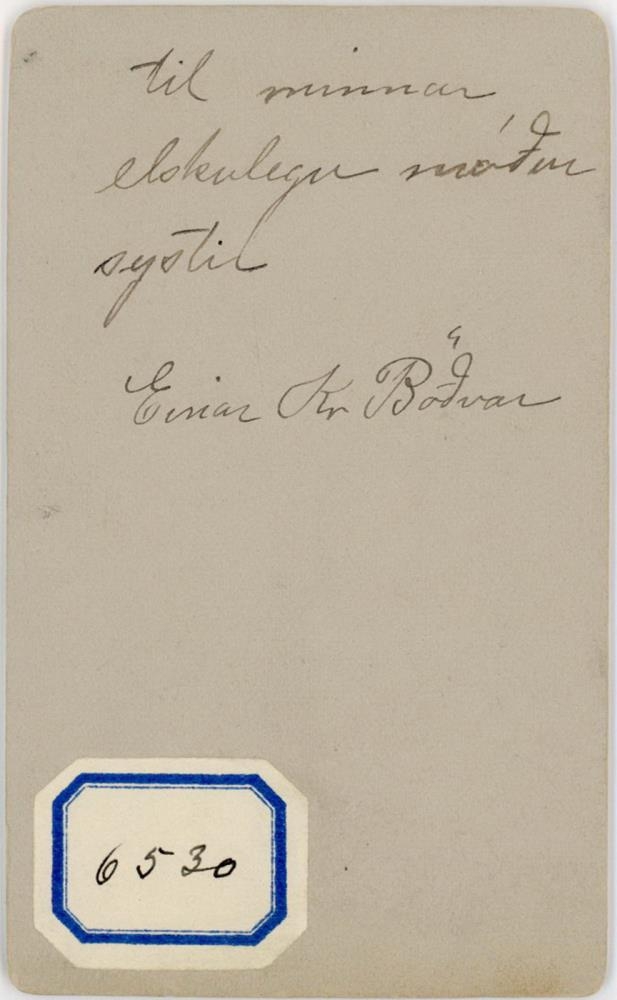 til minnar
elskulegu móður
systir
Einar Kr Böðvar
6530